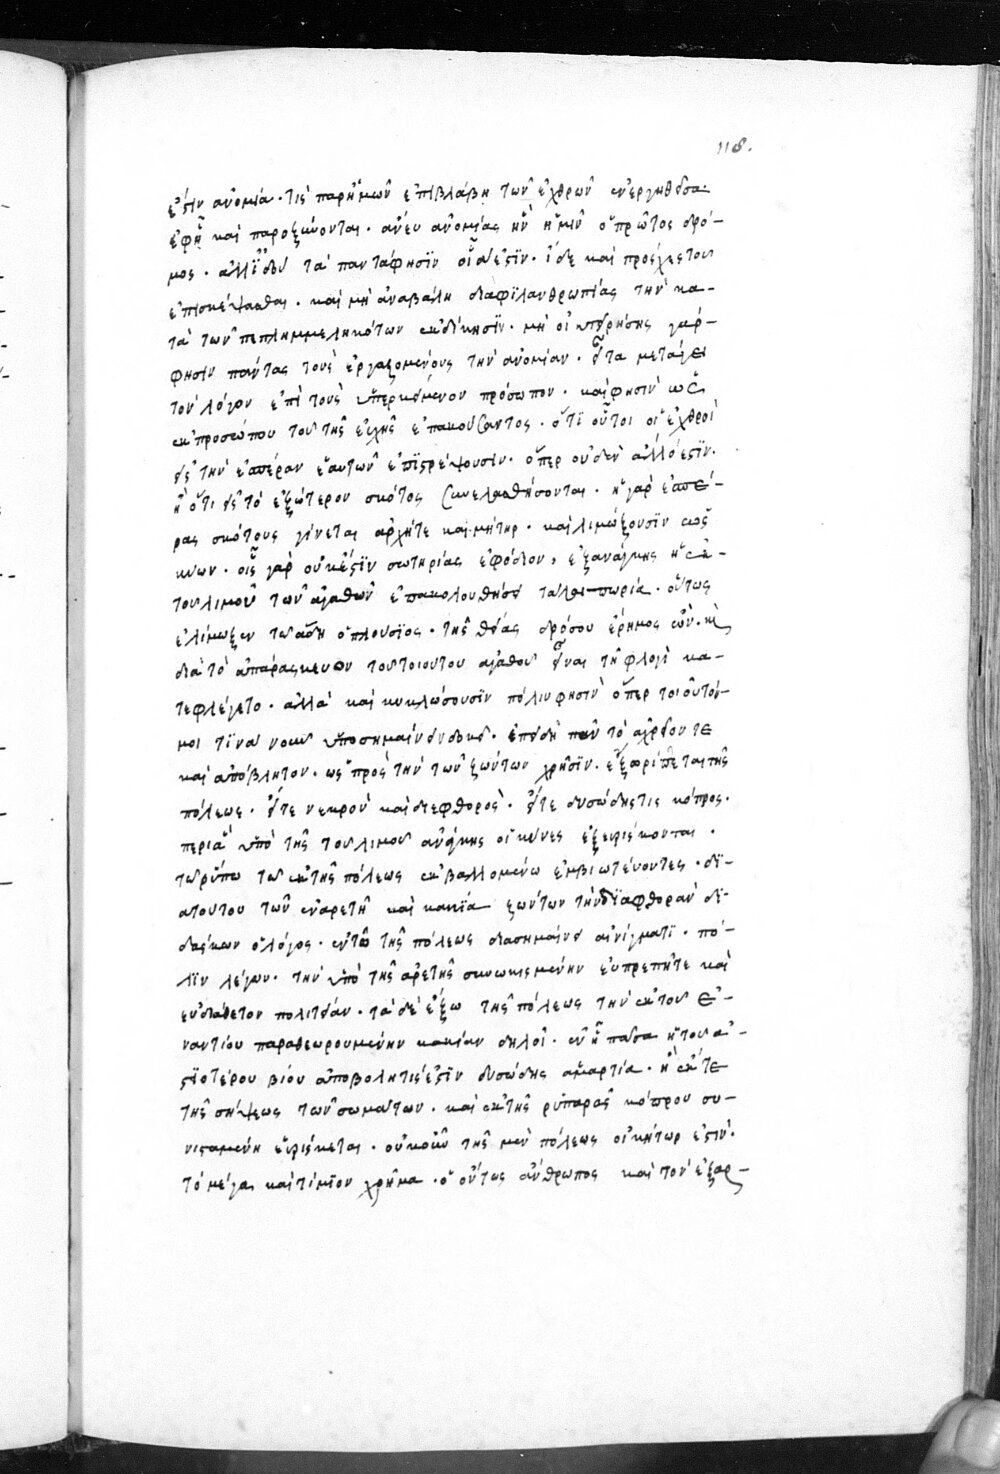 118.
ἐστὶν ἀνομία· τίς παρ' ἡμῶν ἐπὶ βλάβῃ τῶν ἐχθρῶν ἐνεργηθεῖσα·
ἐφ' ᾗ καὶ παροξύνονται· ἄνευ ἀνομίας ἦν ἡμῖν ὁ πρῶτος δρό-
μος· ἀλλ' ἰδοὺ τὰ πάντα φησὶν οἷά ἐστιν· ἴδε καὶ πρόσχες τοῦ
ἐπισκέψασθαι· καὶ μὴ ἀναβάλῃ διὰ φιλανθρωπίας τὴν κα-
τὰ τῶν πεπλημμεληκότων ἐκδίκησιν· μὴ οἰκτειρήσῃς γάρ
φησιν πάντας τοὺς ἐργαζομένους τὴν ἀνομίαν· εἶτα μετάγει
τὸν λόγον ἐπὶ τὸ ὑπερκείμενον πρόσωπον· καὶ φησὶν ὡς
ἐκ προσώπου τοῦ τῆς εὐχῆς ἐπακούσαντος· ὅτι οὗτοι οἱ ἐχθροὶ
εἰς τὴν ἑσπέραν ἑαυτῶν ἐπιστρέψουσιν· ὅπερ οὐδὲν ἄλλό ἐστιν·
ἢ ὅτι εἰς τὸ ἐξώτερον σκότος συνελασθήσονται· ἡ γὰρ ἑσπέ-
ρας σκότους γίνεται ἀρχή τε καὶ μήτηρ· καὶ λιμώξουσιν ὡς
κύων· οἷς γὰρ οὐκ ἔστιν σωτηρίας ἐφόδιον, ἐξ ἀνάγκης ἡ ἐκ
τοῦ λιμοῦ τῶν ἀγαθῶν ἐπακολουθήσει ταλαιπωρία· οὕτως
ἐλίμωξεν τῷ ᾅδῃ ὁ πλούσιος· τῆς θείας δρόσου ἔρημος ὢν· καὶ
διὰ τὸ ἀπαράσκευον τοῦ τοιούτου ἀγαθοῦ εἶναι τῇ φλογὶ κα-
τεφλέγετο· ἀλλὰ καὶ κυκλώσουσιν πόλιν φησὶν ὅπερ τοιοῦτόν
μοι τινὰ νοῦν ὑποσημαίνειν δοκεῖ· ἐπειδὴ πᾶν τὸ ἀχρεῖόν τε
καὶ ἀπόβλητον· ὡς πρὸς τὴν τῶν ζώντων χρῆσιν· ἐξορίπτεται τῆς
πόλεως· εἴτε νεκρὸν καὶ διεφθορὸς· εἴτε δυσώδης τις κόπρος·
περὶ ἃ ὑπὸ τῆς τοῦ λιμοῦ ἀνάγκης οἱ κύνες ἐξευρίσκονται·
τῷ ῥύπῳ τῷ ἐκ τῆς πόλεως ἐκβαλλομένῳ ἐμβιωτεύοντες· δι-
ὰ τούτου τῶν ἐν ἀρετῇ καὶ κακία ζώντων τὴν διαφθορὰν δι-
δάσκων ὁ λόγος· ἐν τῷ τῆς πόλεως διασημαίνει αἰνίγματι· πό-
λιν λέγων· τὴν ὑπὸ τῆς ἀρετῆς συνωκισμένην εὐπρεπῆ τε καὶ
εὐδιάθετον πολιτείαν· τὰ δὲ ἔξω τῆς πόλεως τὴν ἐκ τοῦ ἐ-
ναντίου παραθεωρουμένην κακίαν δηλοῖ· ἐν ᾗ πᾶσα ἡ τοῦ ἀ-
στειοτέρου βίου ἀποβολή τίς ἐστιν δυσώδης ἁμαρτία· ἣ ἔκ τε
τῆς σήψεως τῶν σωμάτων· καὶ ἐκ τῆς ῥυπαρᾶς κόπρου συ-
νισταμένη εὑρίσκεται· οὐκοῦν τῆς μὲν πόλεως οἰκήτωρ ἐστὶν·
τὸ μέγα καὶ τίμιον χρῆμα· ὁ ὄντως ἄνθρωπος καὶ τὸν ἐξ ἀρ-